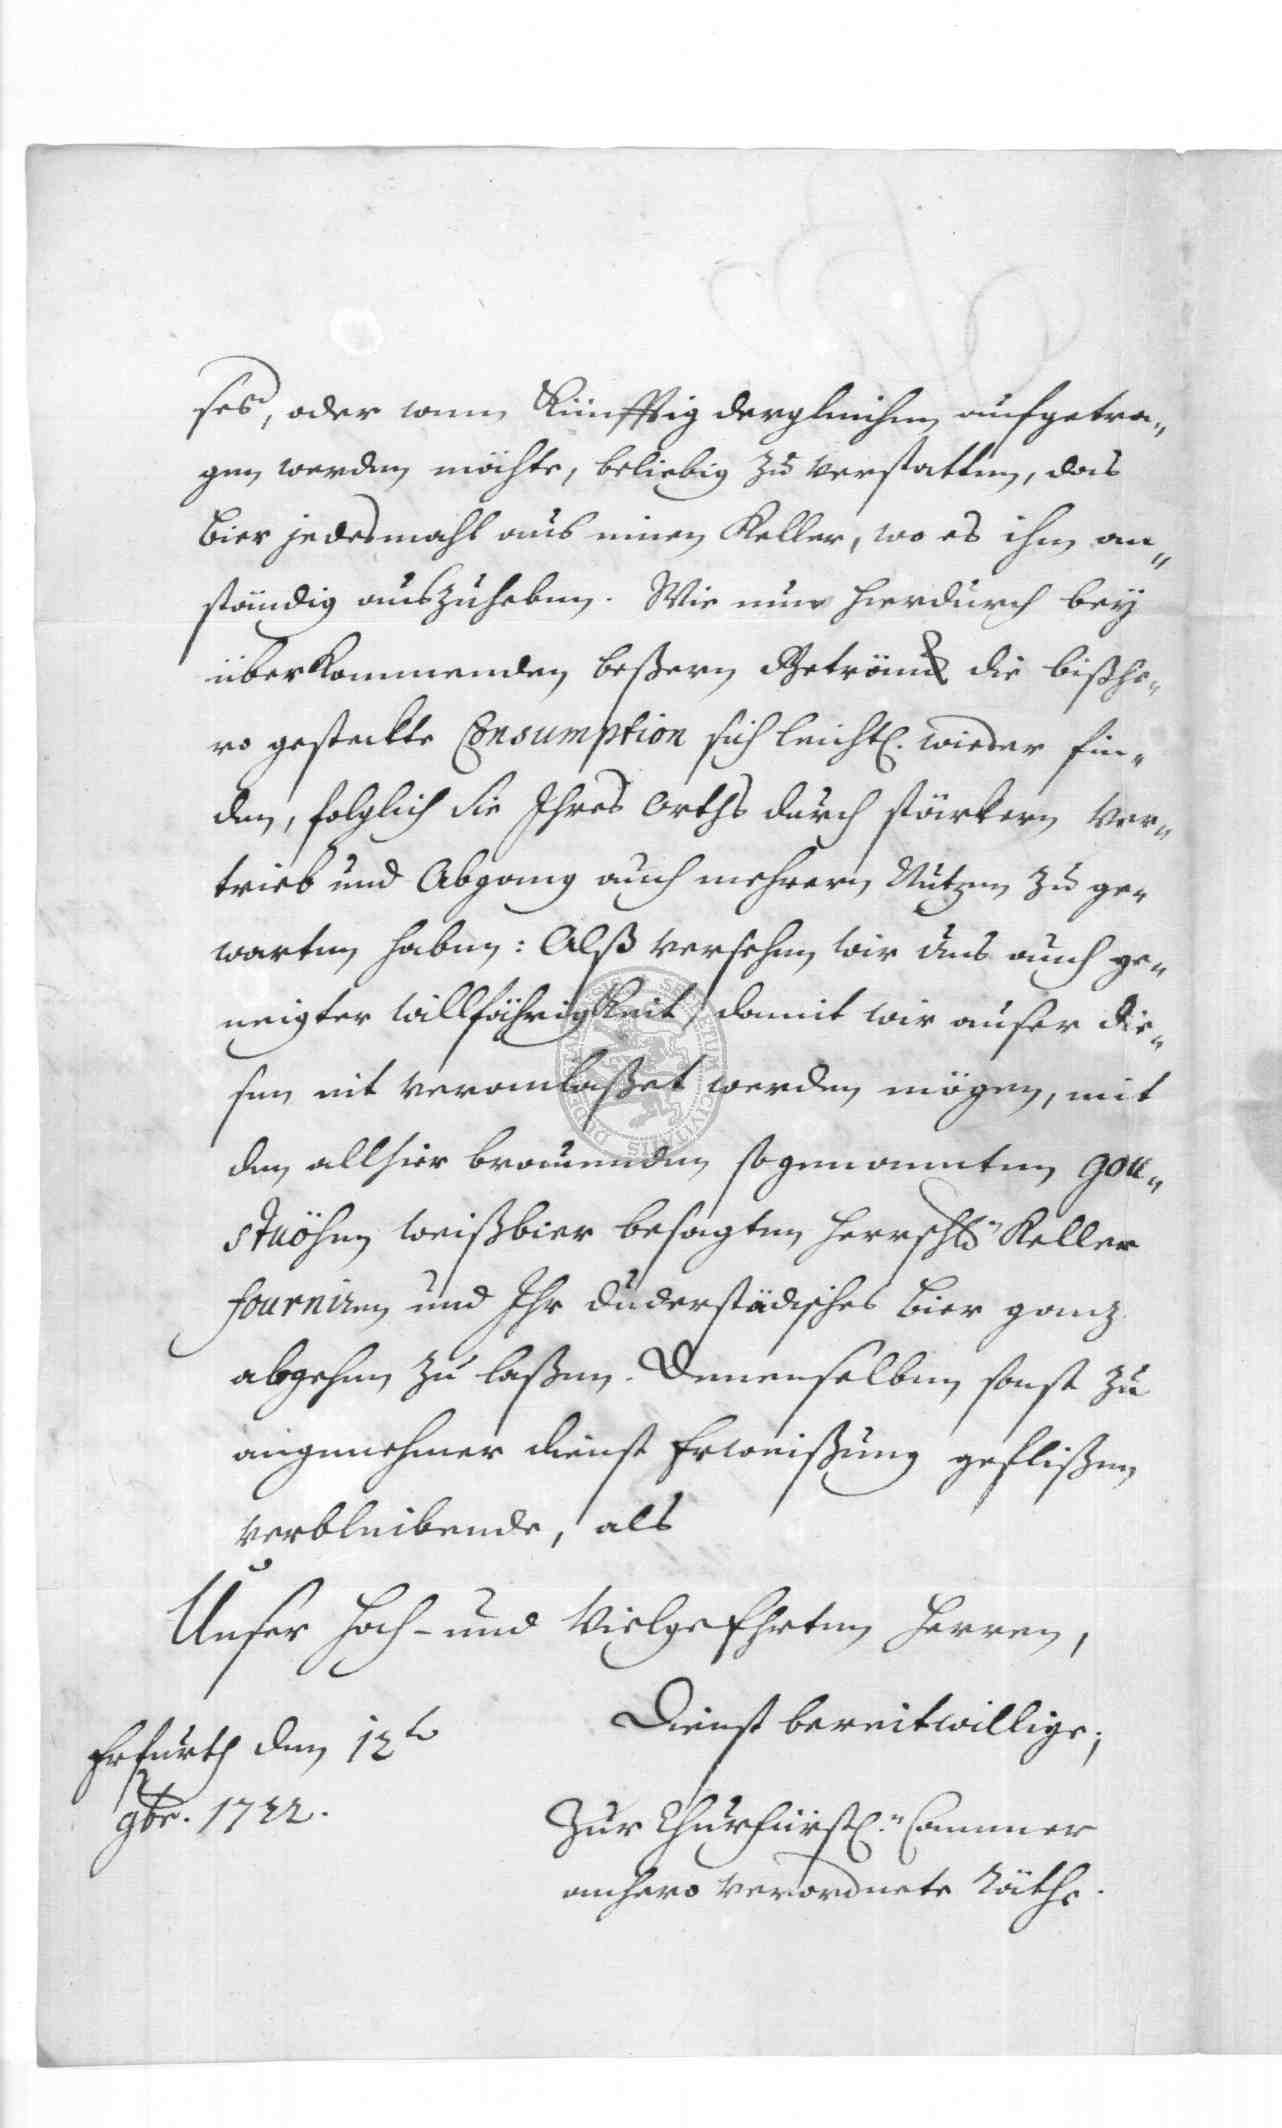 ses, oder wann Künfftig dergleichen aufgetra„
gen werden möchte, beliebig zu verstatten, das
bier jedesmahl aus einen Keller, wo es ihm an„
ständig auszuheben. Wie nun hierdurch bey
überkommenden beßern Getränck die bißhe„
ro gesteckte Consumption sich leichtl. wieder fin„
den, folglich sie Ihres Orths durch stärkern Ver„
trieb und Abgang auch mehrern Nutzen zu ge„
warten haben: Alß versehen wir uns auch ge„
neigter willfährigkeit, damit wir auser die„
sen nit veranlaßet werden mögen, mit
den allhier brauenden sogenannten
weißbier besagten herrschl. Keller
fourniren und Ihr duderstädisches bier ganz
abgehen zu laßen. Denenselben sonst zu
angenehmer dienst Erweißung geflißen
verbleibende, als
Unser Hoch- und Vielgeehrten Herren,
Dienst bereitwillige,
Erfurth den 12t
9br. 1722.
Zur Churfürstl.n Cammer
anhero verordnete Räthe.